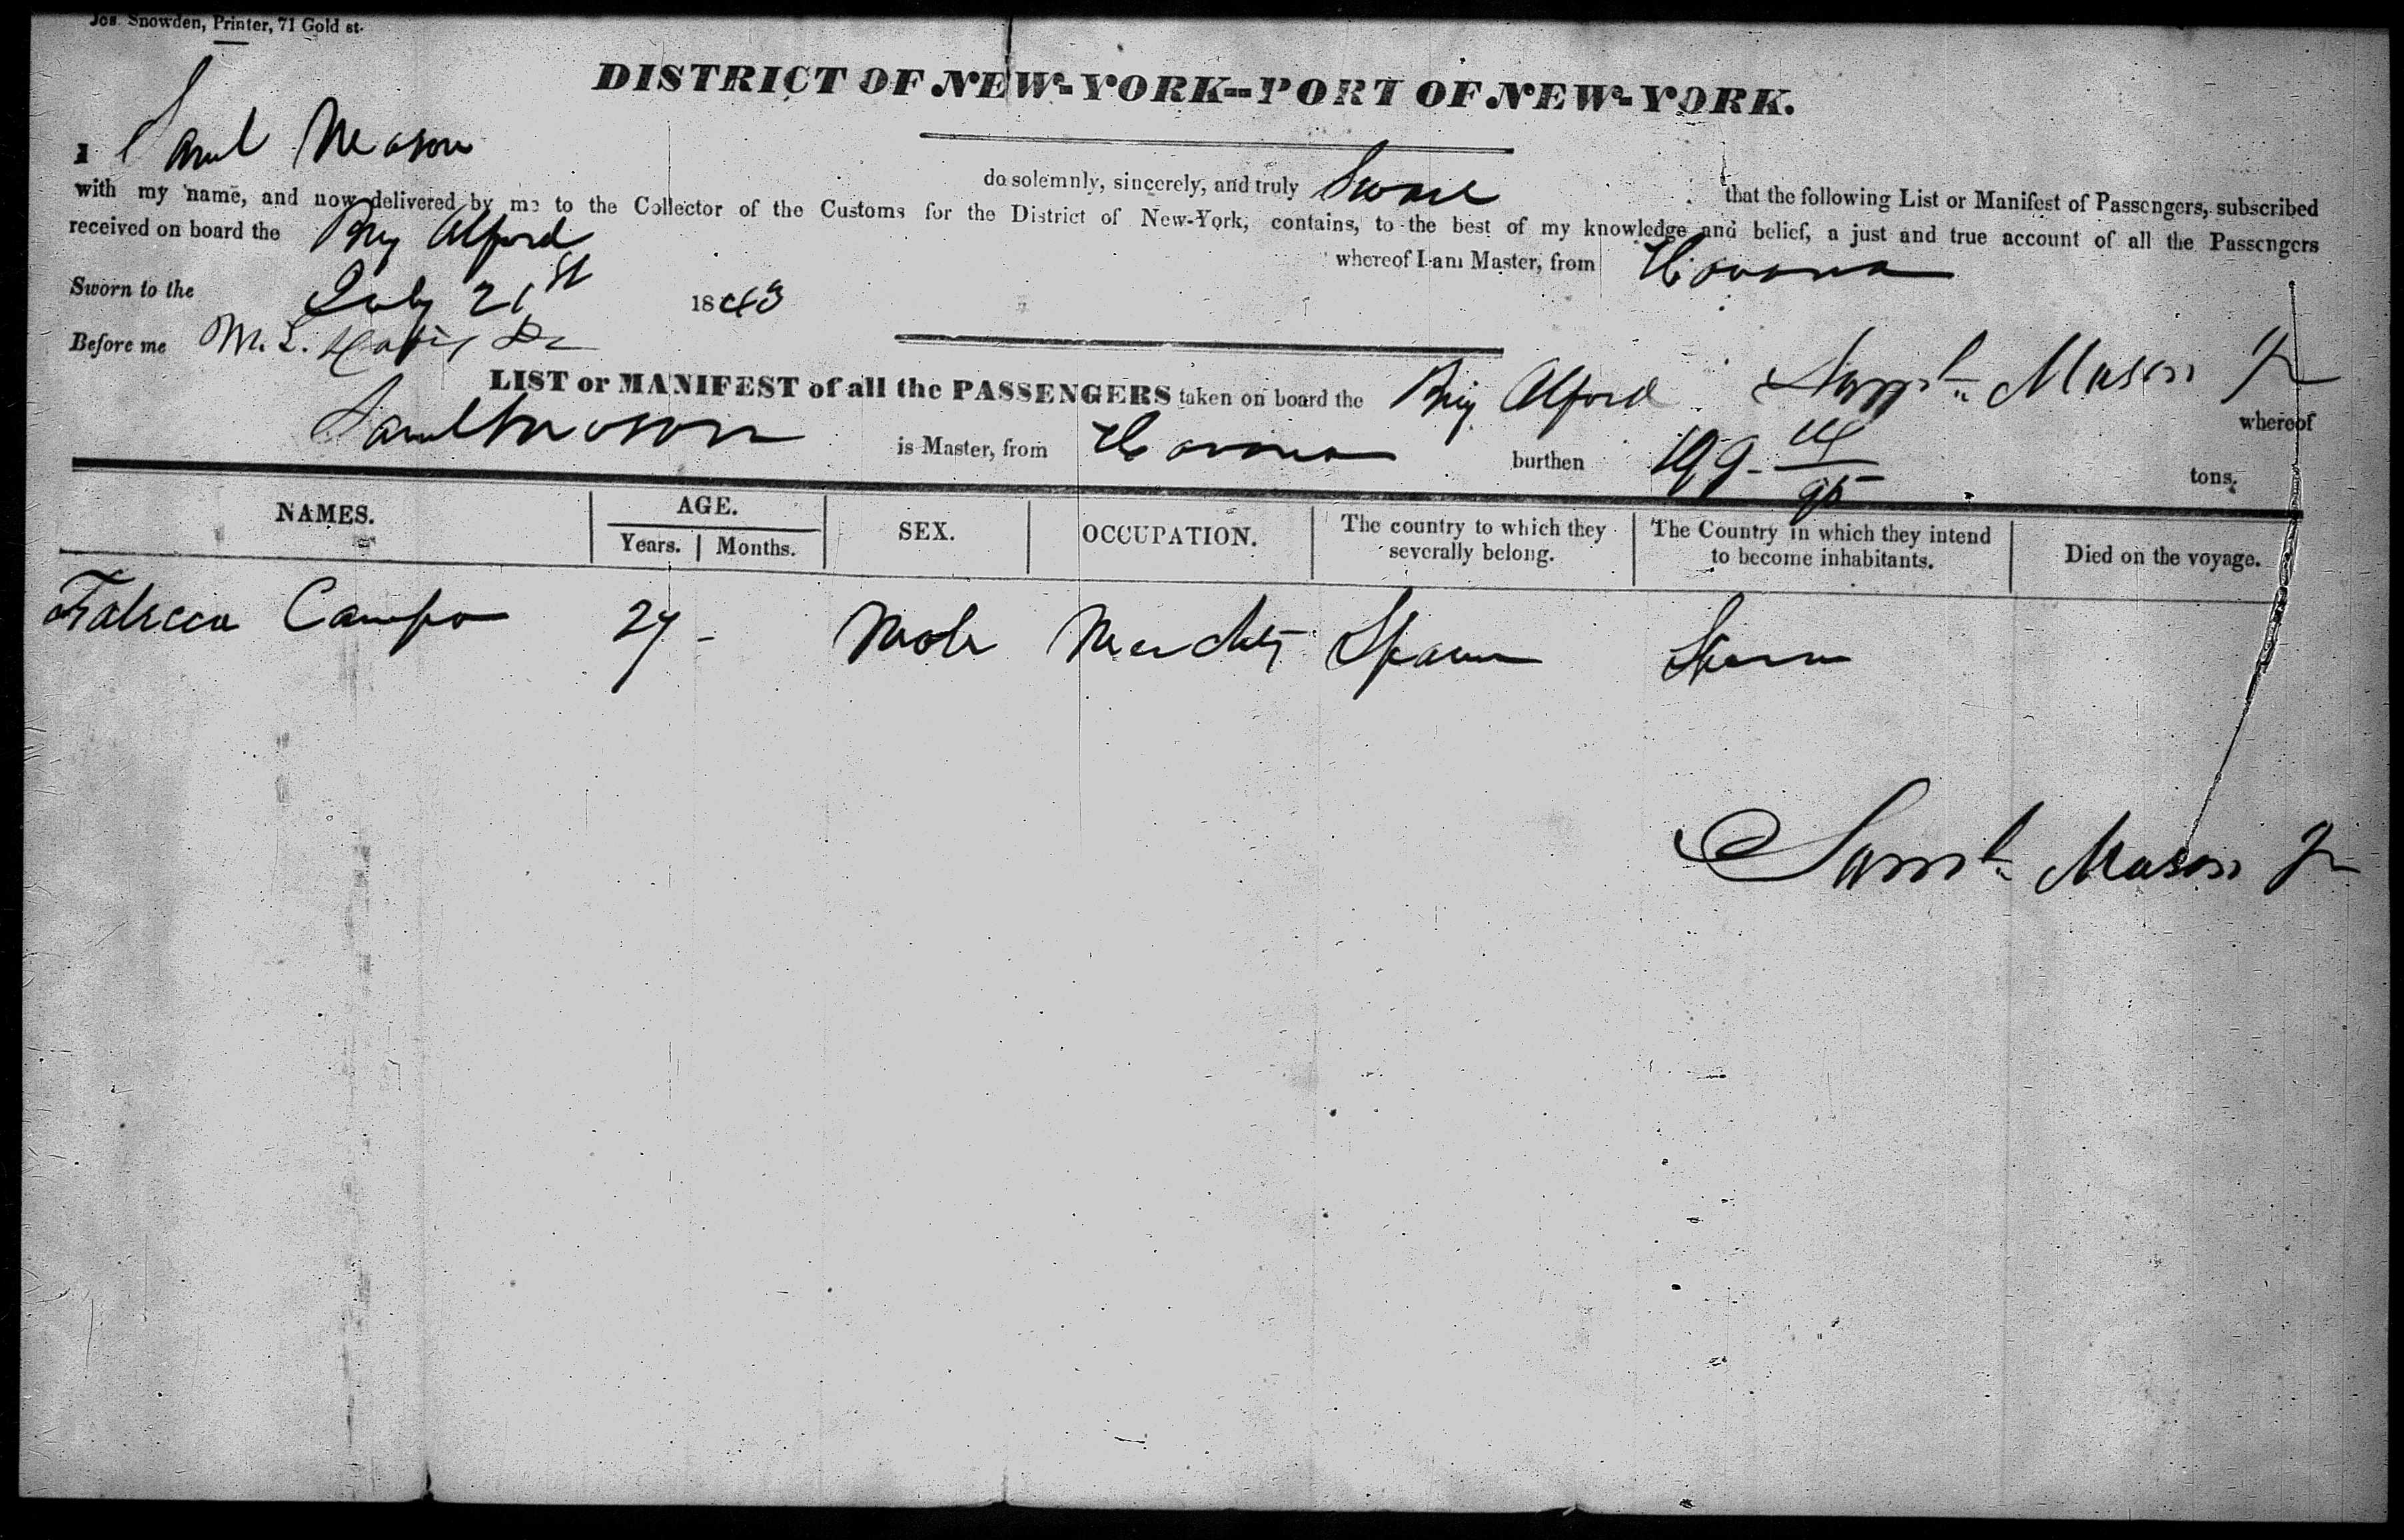 Jos. Snowden, Printer, 71 Gold st.
DISTRICT OF NEW-YORK--PORT OF NEW-YORK.
I Saml Mason do solemnly, sincerely, and truly Swear that the following List or Manifest of Passengers, subscribed
with my name, and now delivered by me to the Collector of the Customs for the District of New-York, contains, to the best of my knowledge and belief, a just and true account of all the Passengers
received on board the Brig Alford whereof I am Master, from Havana
Sworn to the July 21st 1843
Before me M. L.
Saml Mason Jr
LIST or MANIFEST of all the PASSENGERS taken on board the Brig Alford whereof
Saml Mason is Master, from Havana burthen 199 - /95 tons.
NAMES. AGE. SEX. OCCUPATION. The country to which they severally belong. The Country in which they intend to become inhabitants. Died on the voyage.
Years. Months.
Campo 27 - Male Mercht Spain Spain
Saml Mason Jr